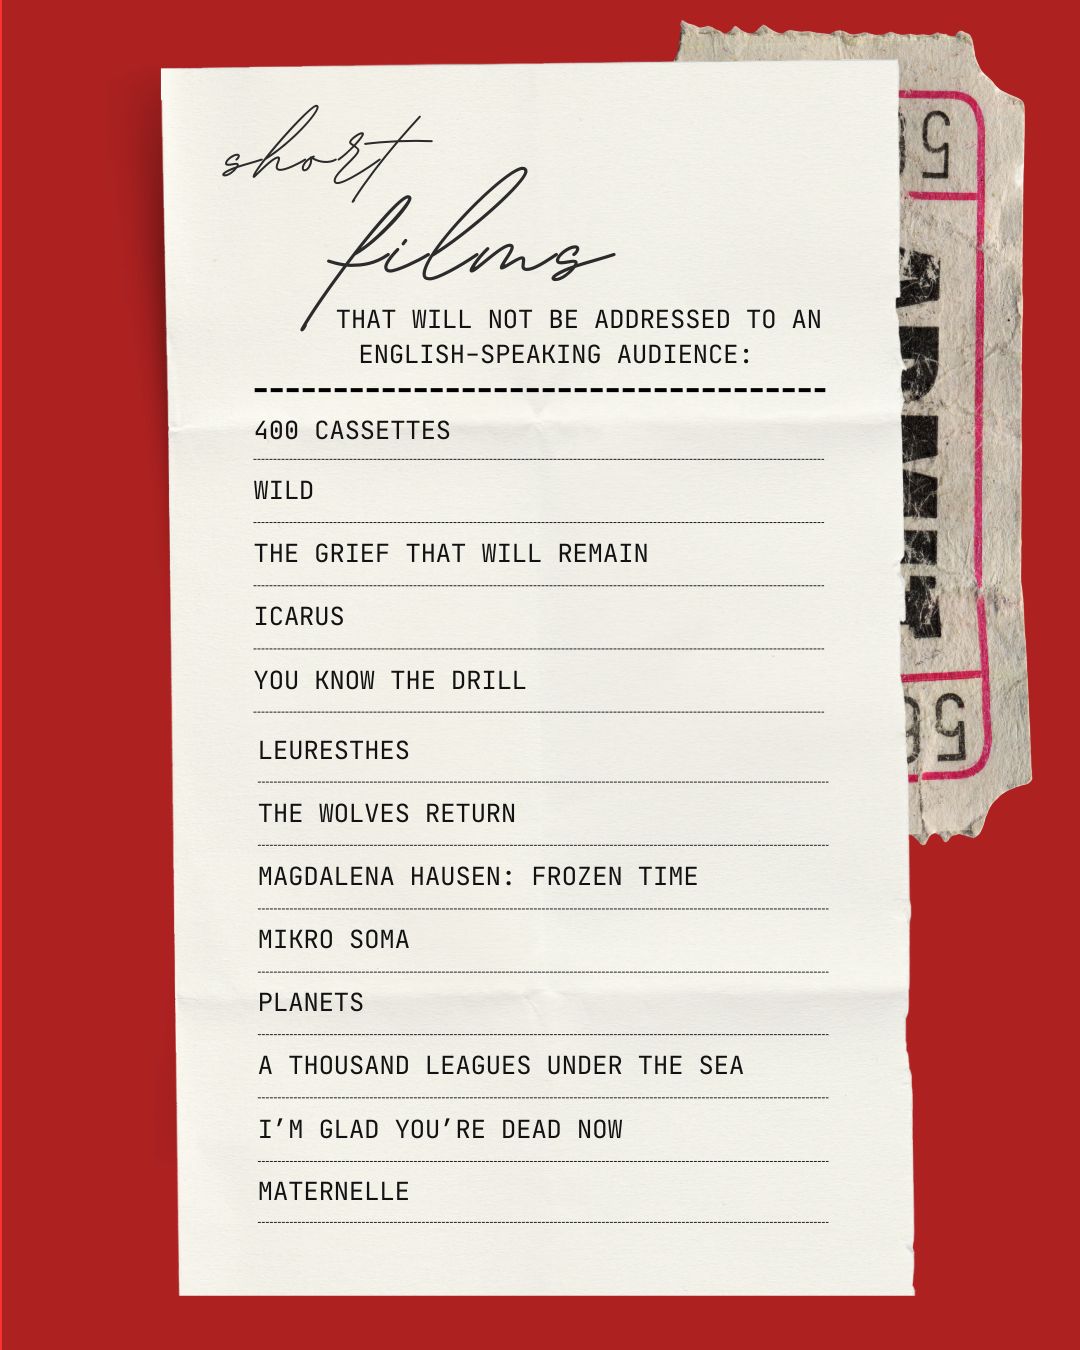 short
films
THAT WILL NOT BE ADDRESSED TO AN
ENGLISH-SPEAKING AUDIENCE:
400 CASSETTES
WILD
THE GRIEF THAT WILL REMAIN
ICARUS
YOU KNOW THE DRILL
LEURESTHES
THE WOLVES RETURN
MAGDALENA HAUSEN: FROZEN TIME
MIKRO SOMA
PLANETS
A THOUSAND LEAGUES UNDER THE SEA
I’M GLAD YOU’RE DEAD NOW
MATERNELLE
ADMIT